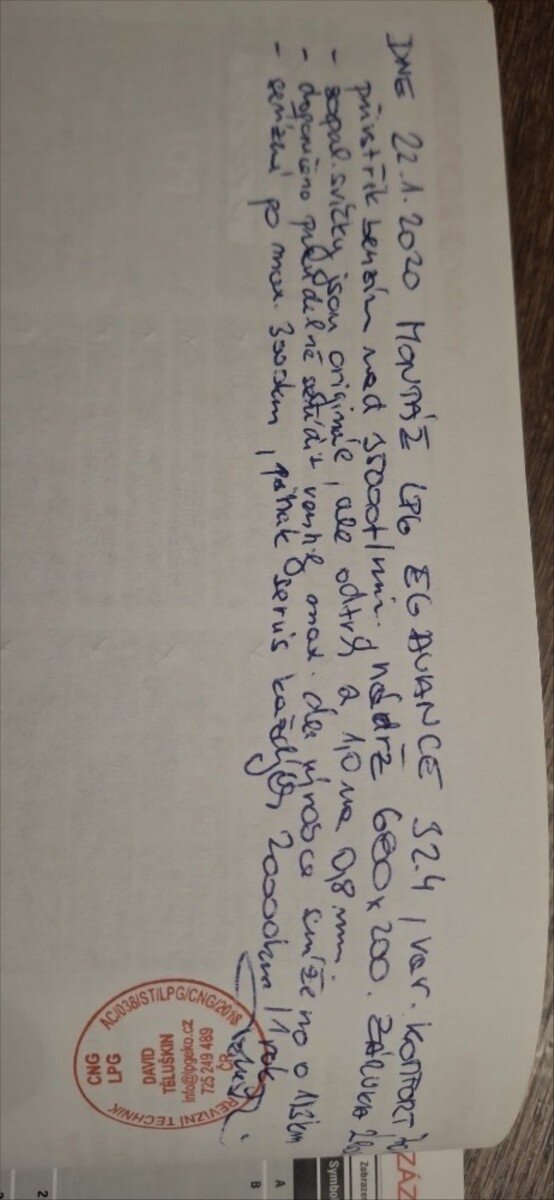 DNE 22.1.2020 MONTÁŽ LPG EG AVANCE 32.4, var. KOMFORT
přístřik benzin nad 3500ot/min. nádrž 680x200. ZÁRUKA
- zapal. svíčky jsou originál, ale odtrh z 1,0 na 0,8 mm.
- doporučeno pravidelně seřídit ventily max. dle výrobce sníženo o 1/3 km
- seřízení po max. 3000km, jinak servis každých 20000km/1 rok
AC/038/ST/LPG/CNG/2018
ČR
725 249 489
info@lpgeko.cz
DAVID
TĚLUŠKIN
LPG
CNG
REVIZNÍ TECHNIK
ZÁZ
Zobrazen
Symbol
A
B
2